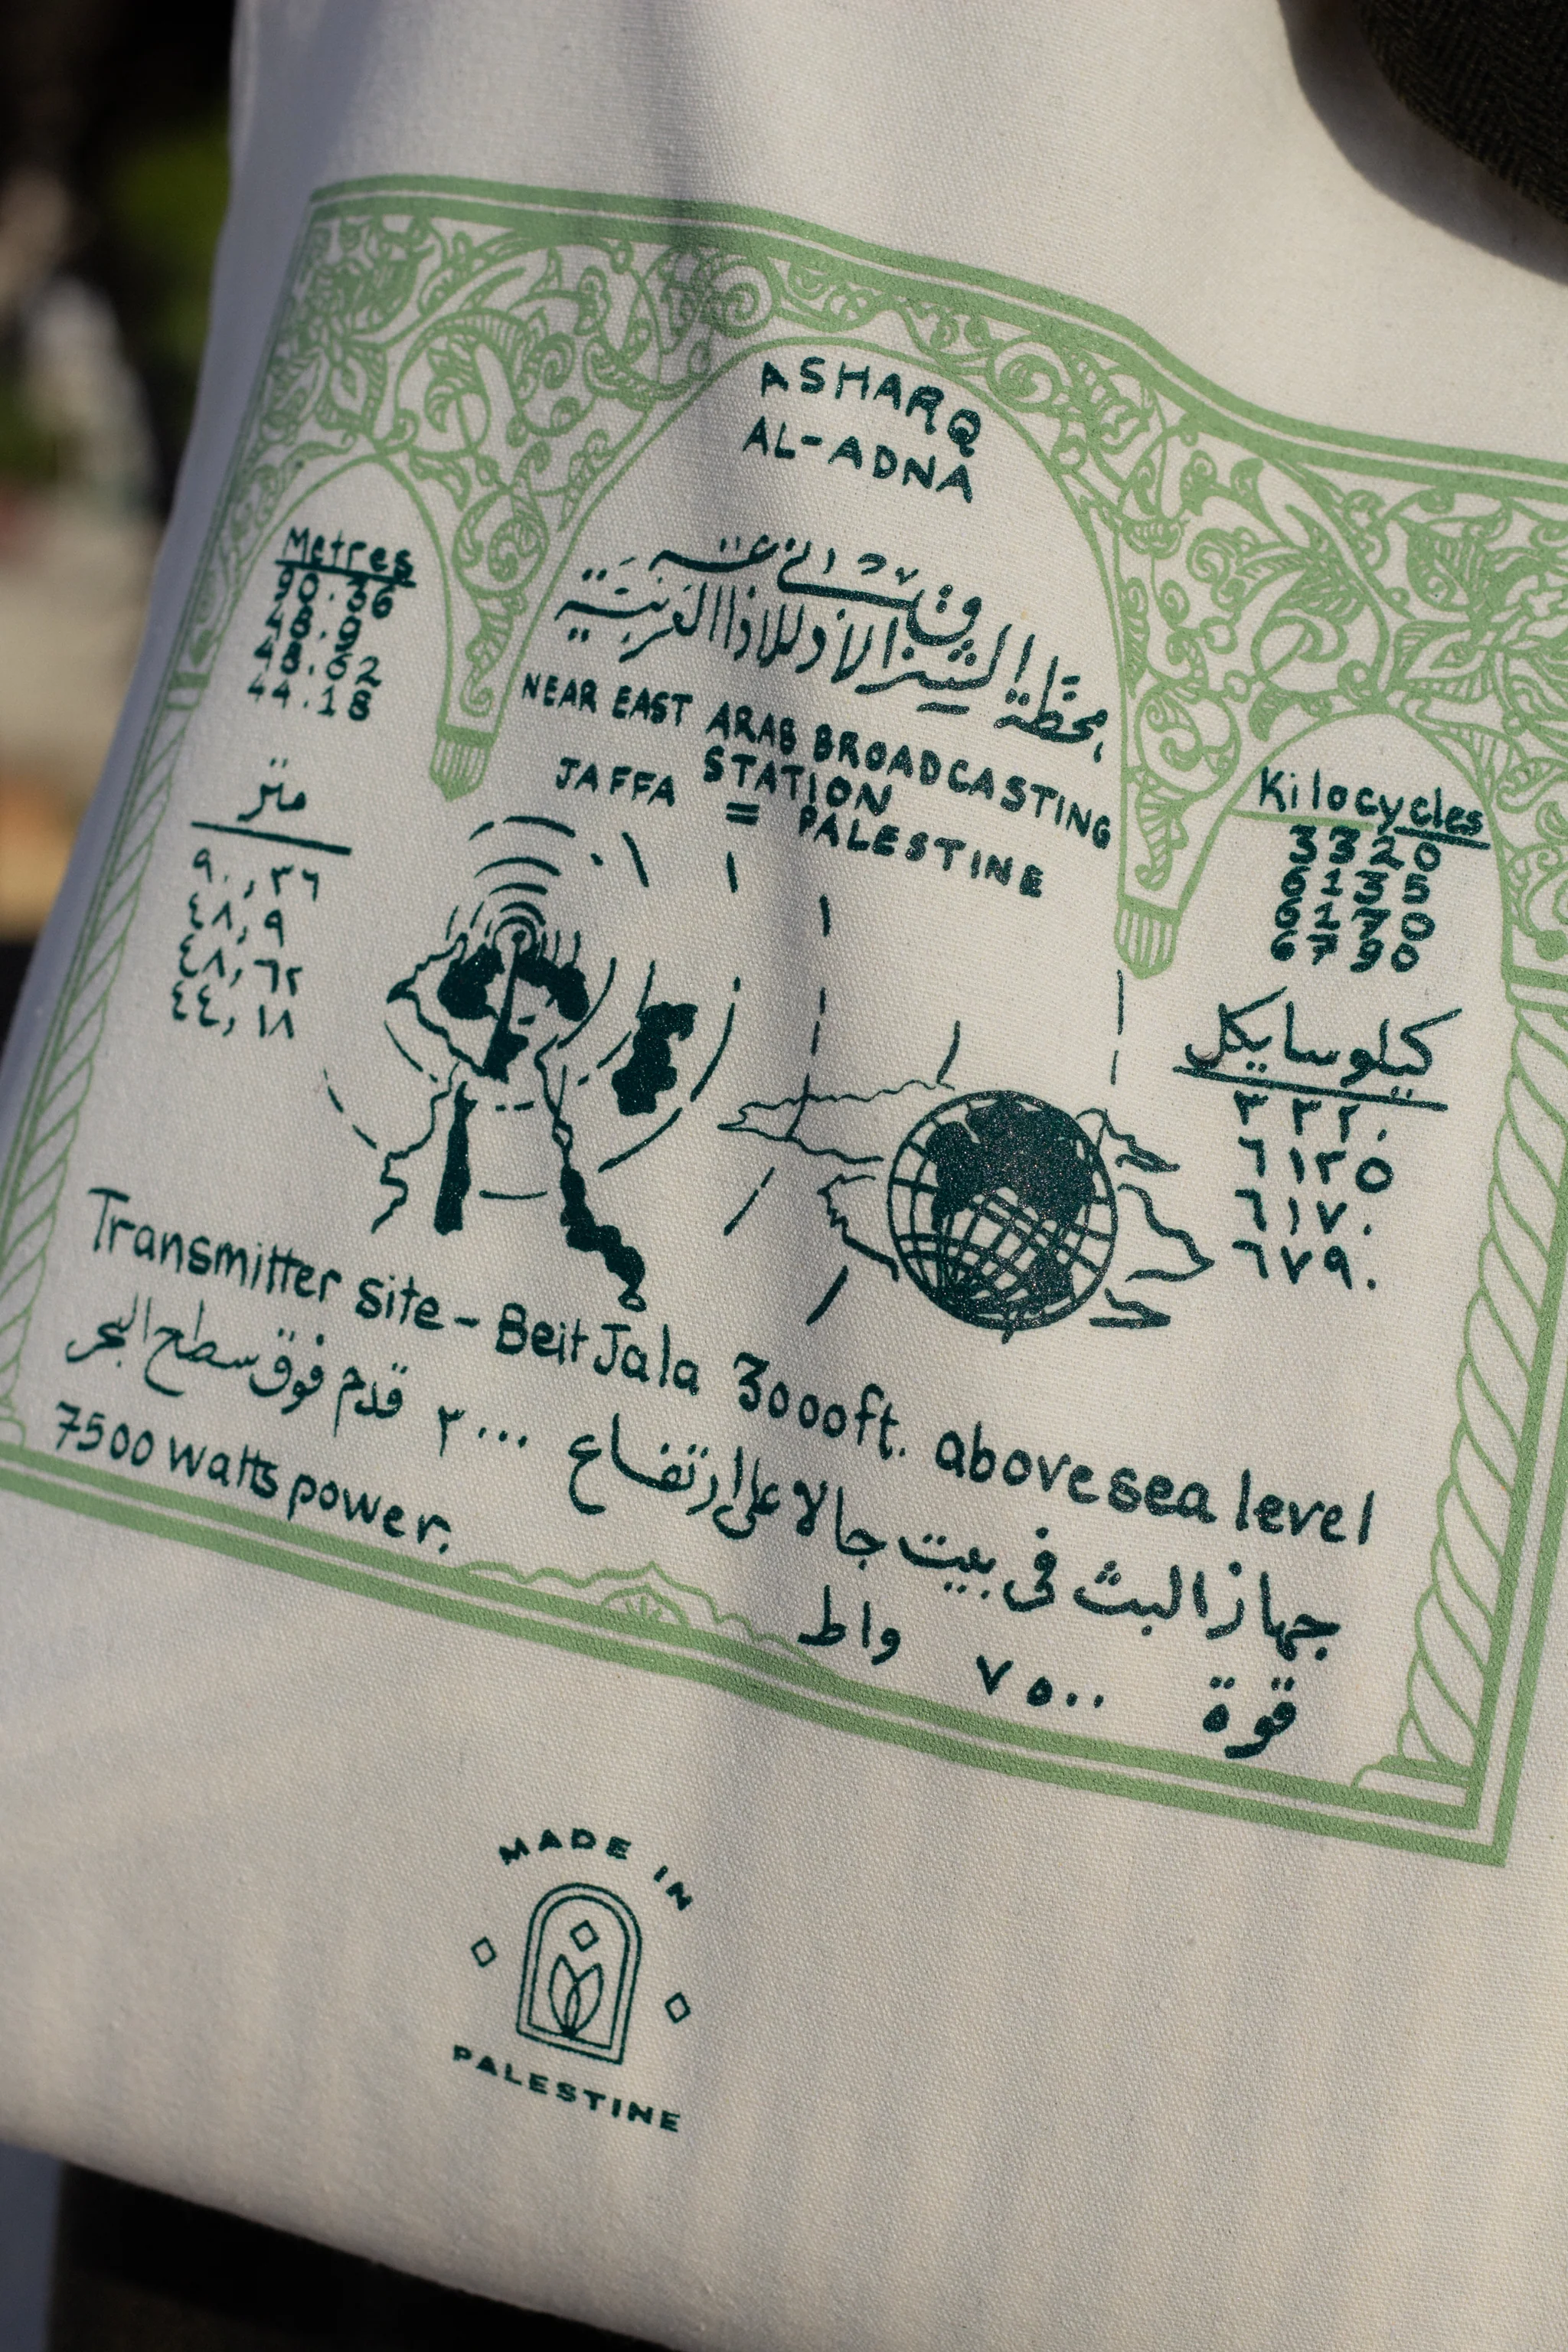 ASHARQ
AL-ADNA
محطة الشرق الأدنى للاذاعة العربية
NEAR EAST ARAB BROADCASTING
STATION
JAFFA = PALESTINE
Metres
90.36
48.9
48.62
44.18
متر
٩٠,٣٦
٤٨,٩
٤٨,٦٢
٤٤,١٨
Kilocycles
3320
6135
6170
6790
كيلوسايكل
٣٣٢٠
٦١٣٥
٦١٧٠
٦٧٩٠
Transmitter site - Beit Jala 3000ft. above sea level
جهاز البث في بيت جالا على ارتفاع ٣٠٠٠ قدم فوق سطح البحر
7500 watts power.
قوة ٧٥٠٠ واط
MADE IN
PALESTINE